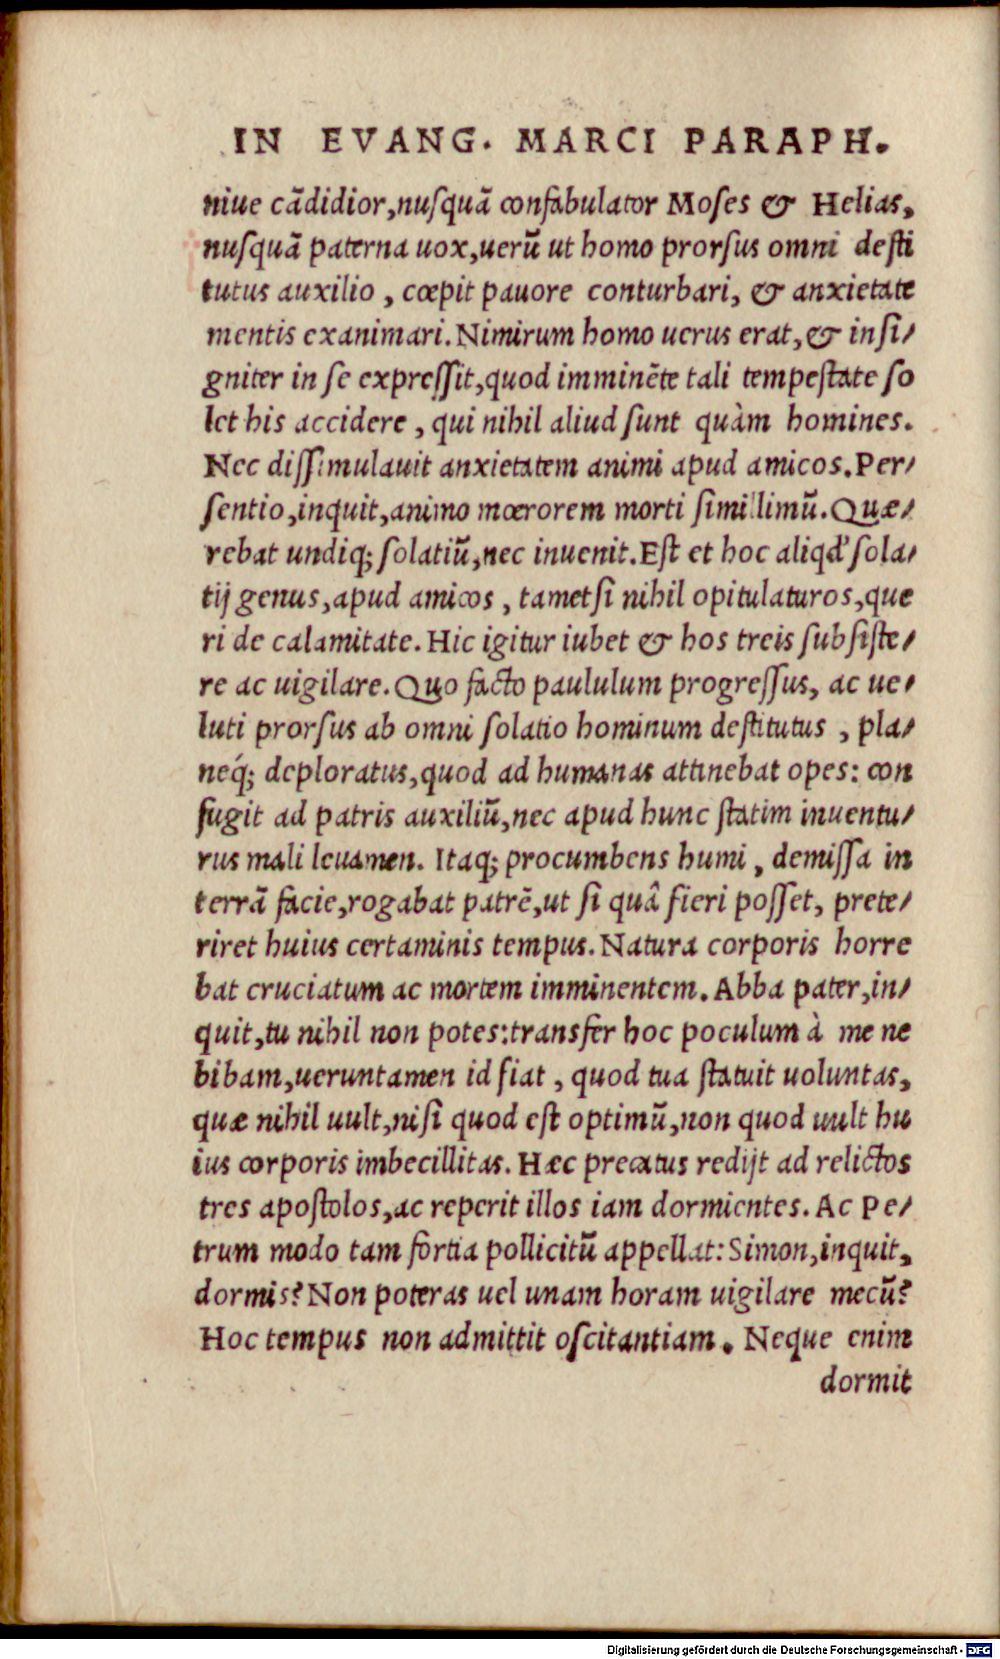 IN EVANG. MARCI PARAPH.
niue cãdidior,nusquã confabulator Moses & Helias,
nusquã paterna uox,uerũ ut homo prorsus omni desti
tutus auxilio , cœpit pauore conturbari, & anxietate
mentis exanimari. Nimirum homo uerus erat,& insi/
gniter in se expressit,quod imminẽte tali tempestate so
let his accidere , qui nihil aliud sunt quàm homines.
Nec dissimulauit anxietatem animi apud amicos. Per/
sentio,inquit,animo mœrorem morti simillimũ. Quæ/
rebat undiq; solatiũ,nec inuenit. Est et hoc aliqd' sola/
tij genus,apud amicos , tametsi nihil opitulaturos,que
ri de calamitate. Hic igitur iubet & hos treis subsiste/
re ac uigilare. Quo facto paululum progressus, ac ue/
luti prorsus ab omni solatio hominum destitutus , pla/
neq́; deploratus,quod ad humanas attinebat opes: con
fugit ad patris auxiliũ,nec apud hunc statim inuentu/
rus mali leuamen. Itaq; procumbens humi , demissa in
terrã facie,rogabat patrẽ,ut si quâ fieri posset, prete/
riret huius certaminis tempus. Natura corporis horre
bat cruciatum ac mortem imminentem. Abba pater,in/
quit,tu nihil non potes:transfer hoc poculum à me ne
bibam,ueruntamen id fiat , quod tua statuit uoluntas,
quæ nihil uult,nisi quod est optimũ,non quod uult hu
ius corporis imbecillitas. Hæc precatus redijt ad relictos
tres apostolos,ac reperit illos iam dormientes. Ac Pe/
trum modo tam fortia pollicitũ appellat: Simon,inquit,
dormis? Non poteras uel unam horam uigilare mecũ?
Hoc tempus non admittit oscitantiam. Neque enim
dormit
Digitalisierung gefördert durch die Deutsche Forschungsgemeinschaft - DFG